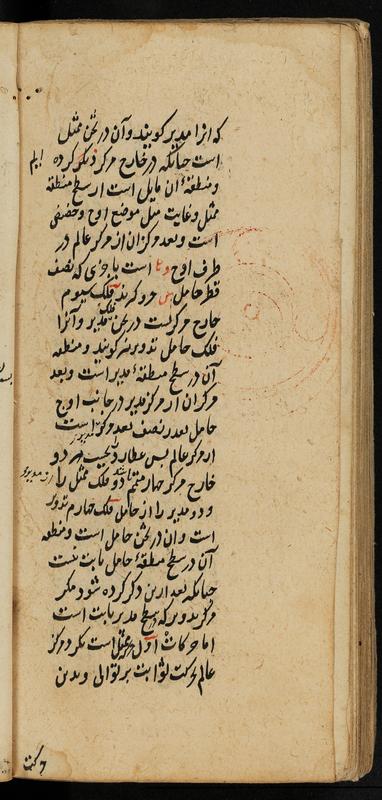 که آنرا مدیر کویند و آن در ثخن ممثل
است چنانکه در خارج مرکز ذکر کرده ایم
و منطقهٔ آن مایل است از سطح منطقه
ممثل و غایت میل موضع اوج و حضیض
است و بعد مرکز آن از مرکز عالم در
طرف اوج است باجزای که نصف
قطر حامل جزو کیرند فلک سیوم
خارج مرکزیست در ثخن فلک مدیر و آنرا
فلک حامل تدویر کویند و منطقه
آن در سطح منطقهٔ مدیر است و بعد
مرکز آن از مرکز مدیر در جانب اوج
حامل بقدر نصف بعد مرکز مدیر است
از مرکز عالم پس عطارد را دو
خارج مرکز دو فلک ممثل را
و دو مدیر را از حامل فلک چهارم تدویر
است و آن در ثخن حامل است و منطقه
آن در سطح منطقهٔ حامل ثابت نیست
چنانکه بعد ازین ذکر کرده شود مکر
مرکز تدویر که در سطح مدیر ثابت است
اما حرکات اول ممثل است بکرد مرکز
عالم بحرکت ثوابت بر توالی و بدین